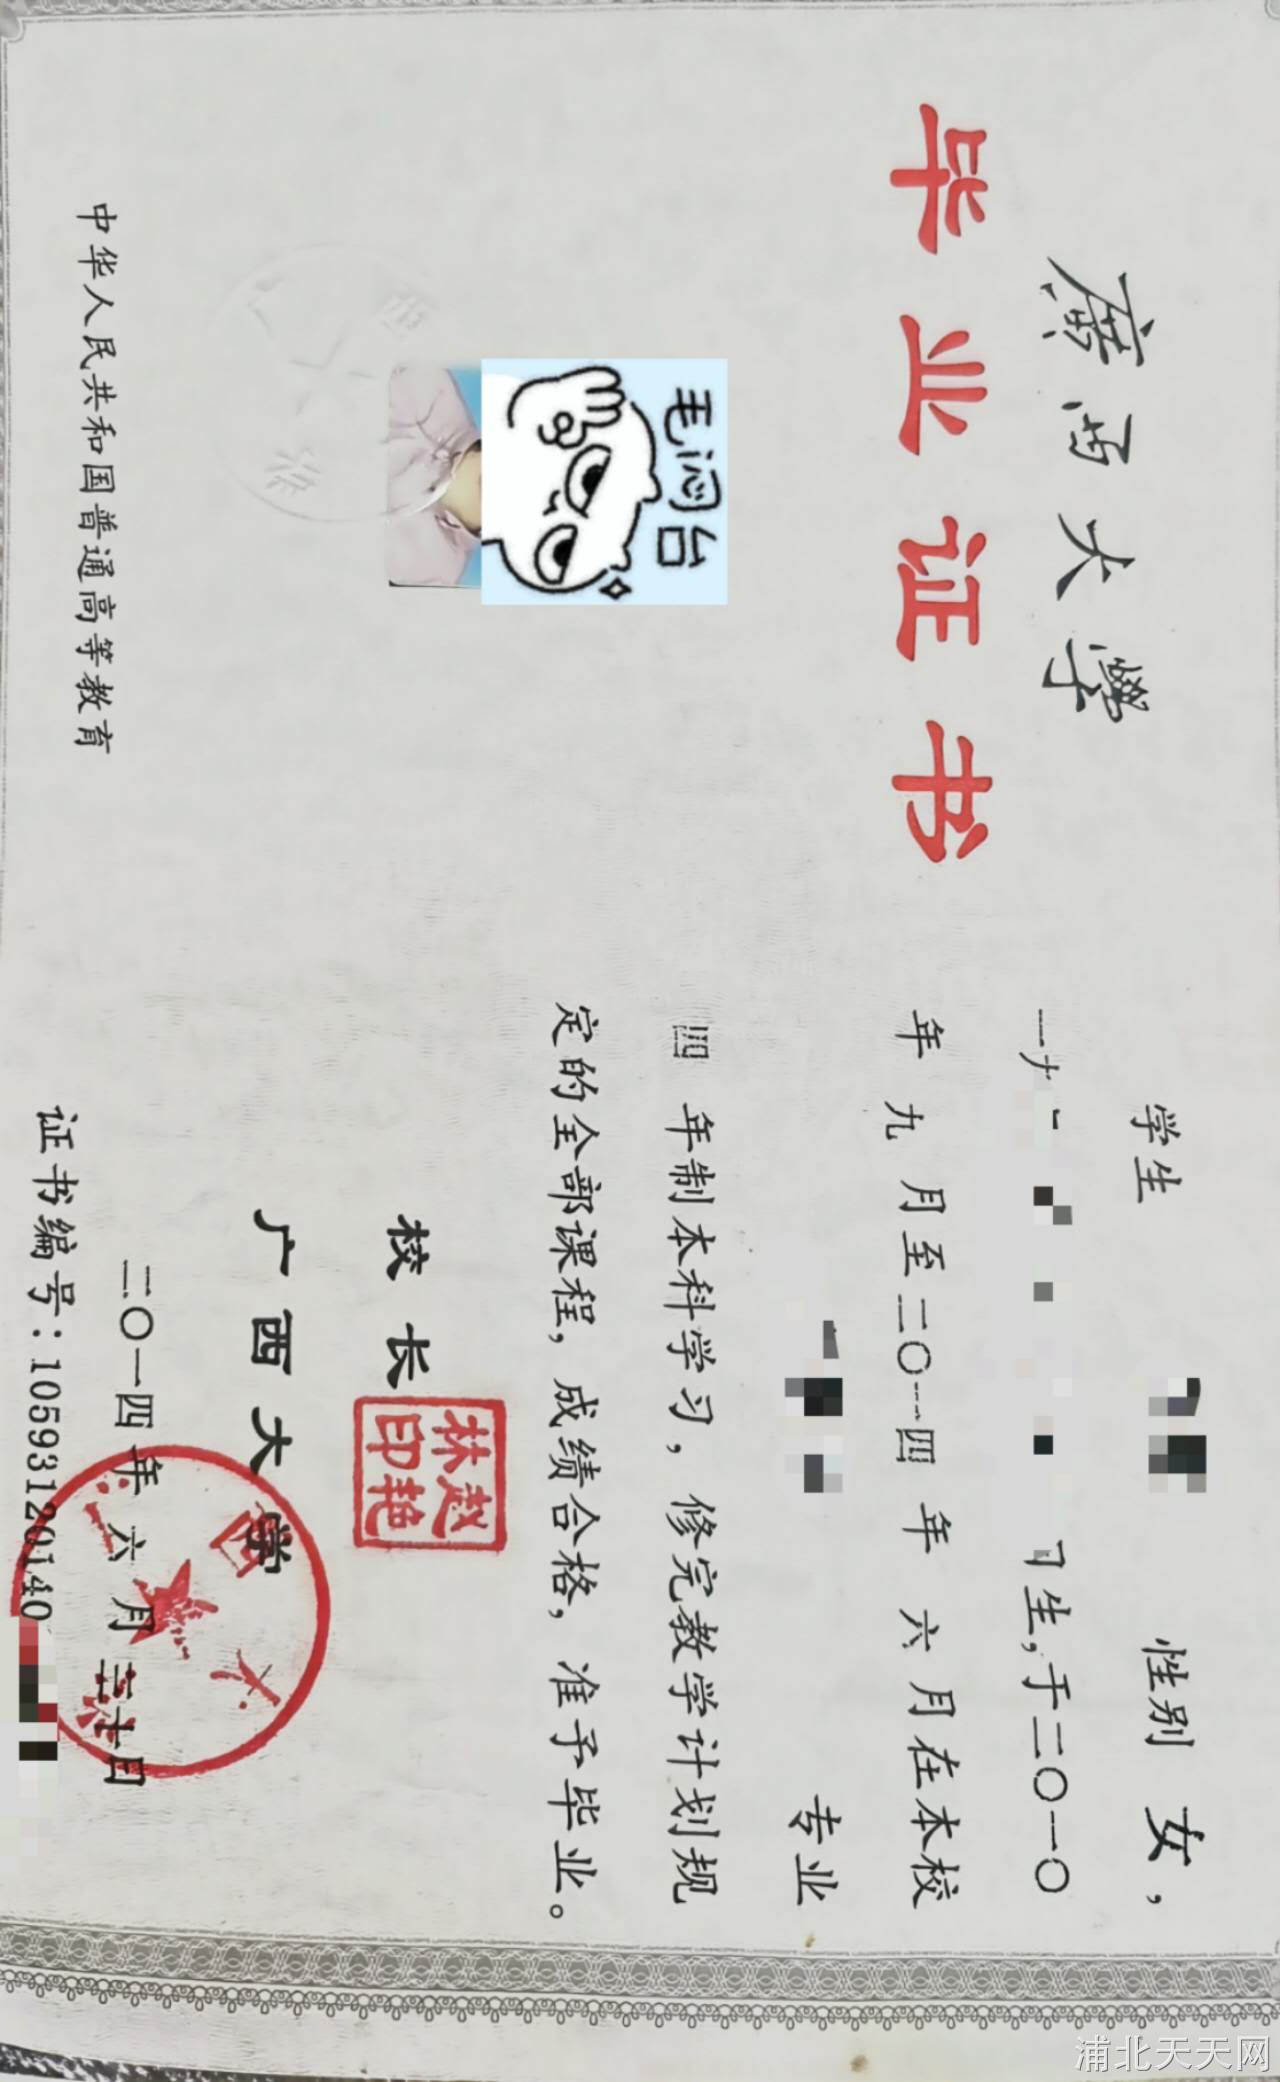 广西大学
毕业证书
毛闷台
中华人民共和国普通高等教育
学生 性别 女，
生，于二〇一〇
年 九 月至二〇一四 年 六 月在本校
专业
四 年制本科学习，修完教学计划规
定的全部课程，成绩合格，准予毕业。
校 长
赵艳林印
广 西 大 学
二〇一四 年 六 月 三十日
证书编号：1059312014０
浦北天天网